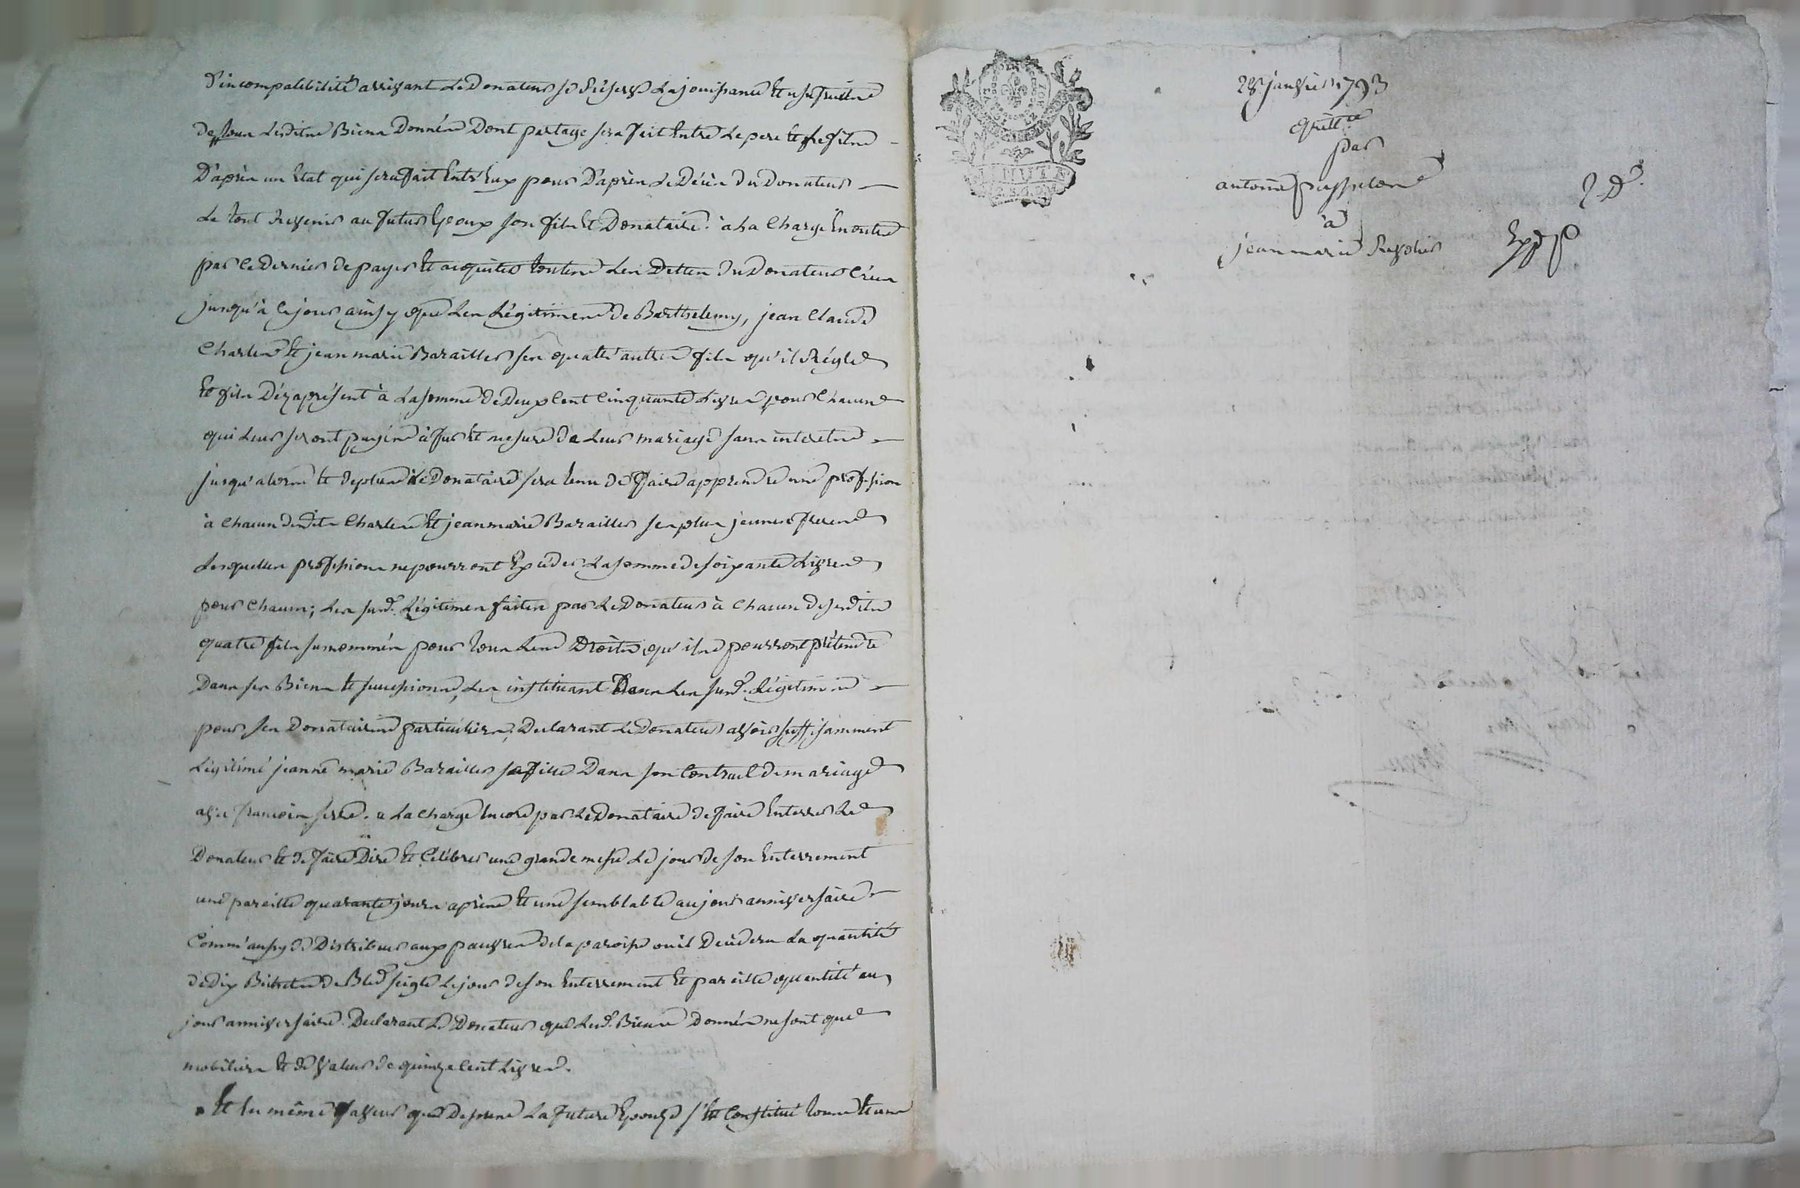 d'incompatibilité arrivant Le Donateur se Réserve La jouissance Et usufruit
de tous Lesdits Biens Donnés Dont partage sera fait Entre Le pere Et Le fils
D'après un Etat qui sera fait Entr'Eux pour D'après Le Décès Du Donateur
Le tout Revenir au futur Epoux son fils Et Donataire. à La Charge En outre
par Ce Dernier de payer Et acquitter toutes Les Dettes Du Donateur Crées
jusqu'à Ce jour ainsy que Les Légitimes de Barthelemy, jean Claude
Charles Et jean marie Barailler ses quatre autres fils qu'il Régle
Et fixe Dézaprésent à La somme de Deux Cent Cinquante Livres pour Chacun
qui Leur seront payés à fur Et mesure de Leur mariage sans interets
jusqu'alors Et de plus Le Donataire sera tenu de faire apprendre une profession
à Chacun desdits Charles Et jean marie Barailler ses plus jeunes freres
Lesquelles professions ne pourront Excéder La somme de soixante Livres
pour Chacun; Les susd. Légitimes faites par Le Donateur à Chacun desesdits
quatre fils susnommés pour tous Les Droits qu'ils pourront prétendre
Dans ses Biens Et successions, Les instituant Dans Les susd. Légitimes
pour ses Donataires particuliers, Declarant Le Donateur avoir suffisamment
Légitimé jeanne marie Barailler sa fille Dans son Contract de mariage
avec francois serre. à La Charge Encore par Le Donataire de faire Enterrer Le
Donateur Et de faire Dire Et Célébrer une grande messe Le jour de son Enterrement
une pareille quarante jours après Et une semblable au jour anniversaire
Comm'aussy de Distribuer aux pauvres de la paroisse ou il Decédera La quantité
de Dix Bichets de Bled seigle Le jour de son Enterrement Et pareille quantité au
jour anniversaire. Declarant Le Donateur que Lesd. Biens Donnés ne sont que
mobiliers Et de valeur de quinze Cent Livres.
Et En même faveur que Dessus La future Epouze s'Est Constitué tous Et uns
28 janvier 1793
quitt.ce
par
antoine
à
jean marie Revolier
Exp.